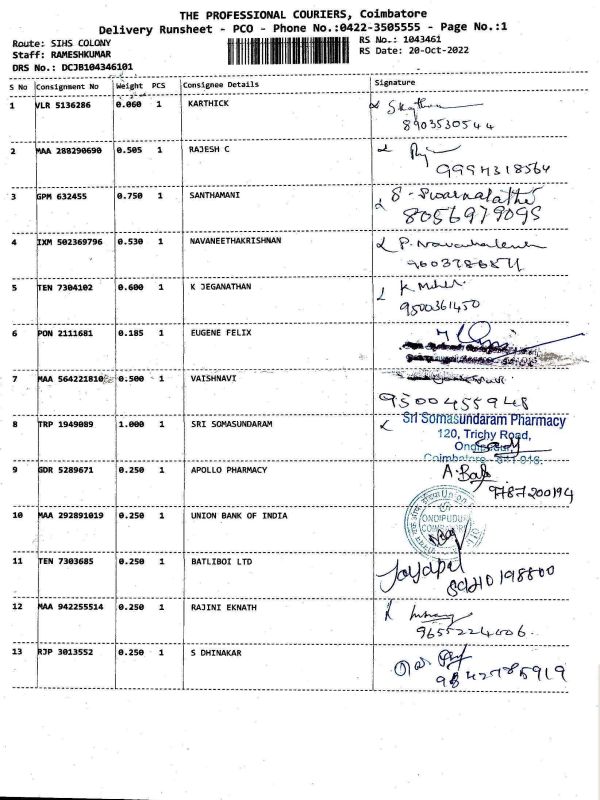 THE PROFESSIONAL COURIERS, Coimbatore
Delivery Runsheet - PCO - Phone No.:0422-3505555 - Page No.:1
Route: SIHS COLONY RS No.: 1043461
Staff: RAMESHKUMAR RS Date: 20-Oct-2022
DRS No.: DCJB104346101
S No Consignment No Weight PCS Consignee Details Signature
1 VLR 5136286 0.060 1 KARTHICK
8903530544
2 MAA 288290690 0.505 1 RAJESH C
9994318564
3 GPM 632455 0.750 1 SANTHAMANI S. Swarnalatha
8056979095
4 IXM 502369796 0.530 1 NAVANEETHAKRISHNAN
5 TEN 7304102 0.600 1 K JEGANATHAN
9500361450
6 PON 2111681 0.185 1 EUGENE FELIX
7 MAA 564221810 0.500 1 VAISHNAVI
9500455948
8 TRP 1949089 1.000 1 SRI SOMASUNDARAM Sri Somasundaram Pharmacy
120, Trichy Road,
Coimbatore - 641 016.
9 GDR 5289671 0.250 1 APOLLO PHARMACY
9787200194
10 MAA 292891019 0.250 1 UNION BANK OF INDIA
11 TEN 7303685 0.250 1 BATLIBOI LTD
12 MAA 942255514 0.250 1 RAJINI EKNATH
9655224006.
13 RJP 3013552 0.250 1 S DHINAKAR